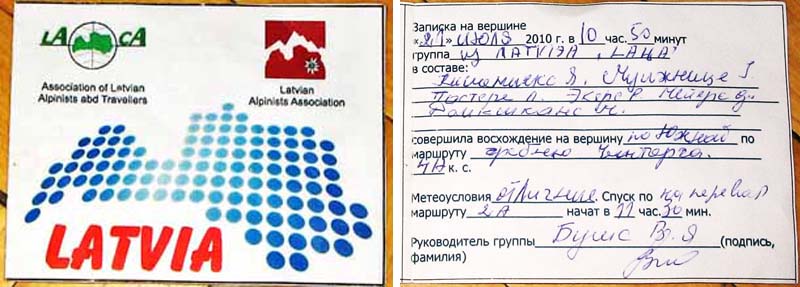 LA CA
Association of Latvian
Alpinists abd Travellers
Latvian
Alpinists Association
LATVIA
Записка на вершине
«21» июля 2010 г. в 10 час. 50 минут
группа из LATVIJA, LAЦA
в составе:
Я. Муижниеце I.
Пастере Л. Эксре Р. Мейере Д.
совершила восхождение на вершину по Южной по
маршруту гребню
4А к. с.
Метеоусловия отличные. Спуск по на перевал
маршруту 2А начат в 11 час. 30 мин.
Руководитель группы Бушс Вл. Я (подпись,
фамилия)